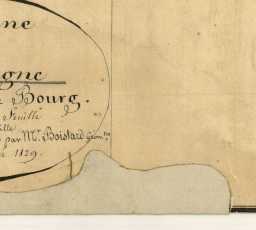 ne
gne
Bourg.
Feuille
lle
par Mr. Boistard Géom.
1829.